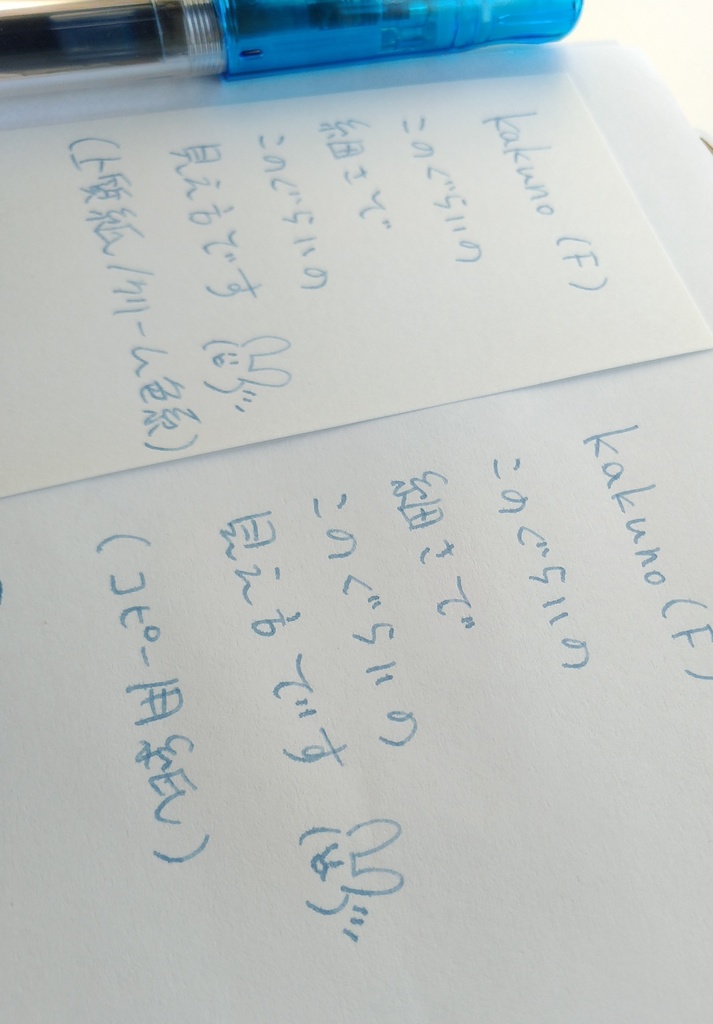 kakuno (F)
このぐらいの
細さで
このぐらいの
見え方です
(上質紙/クリーム色系)
kakuno (F)
このぐらいの
細さで
このぐらいの
見え方です
(コピー用紙)